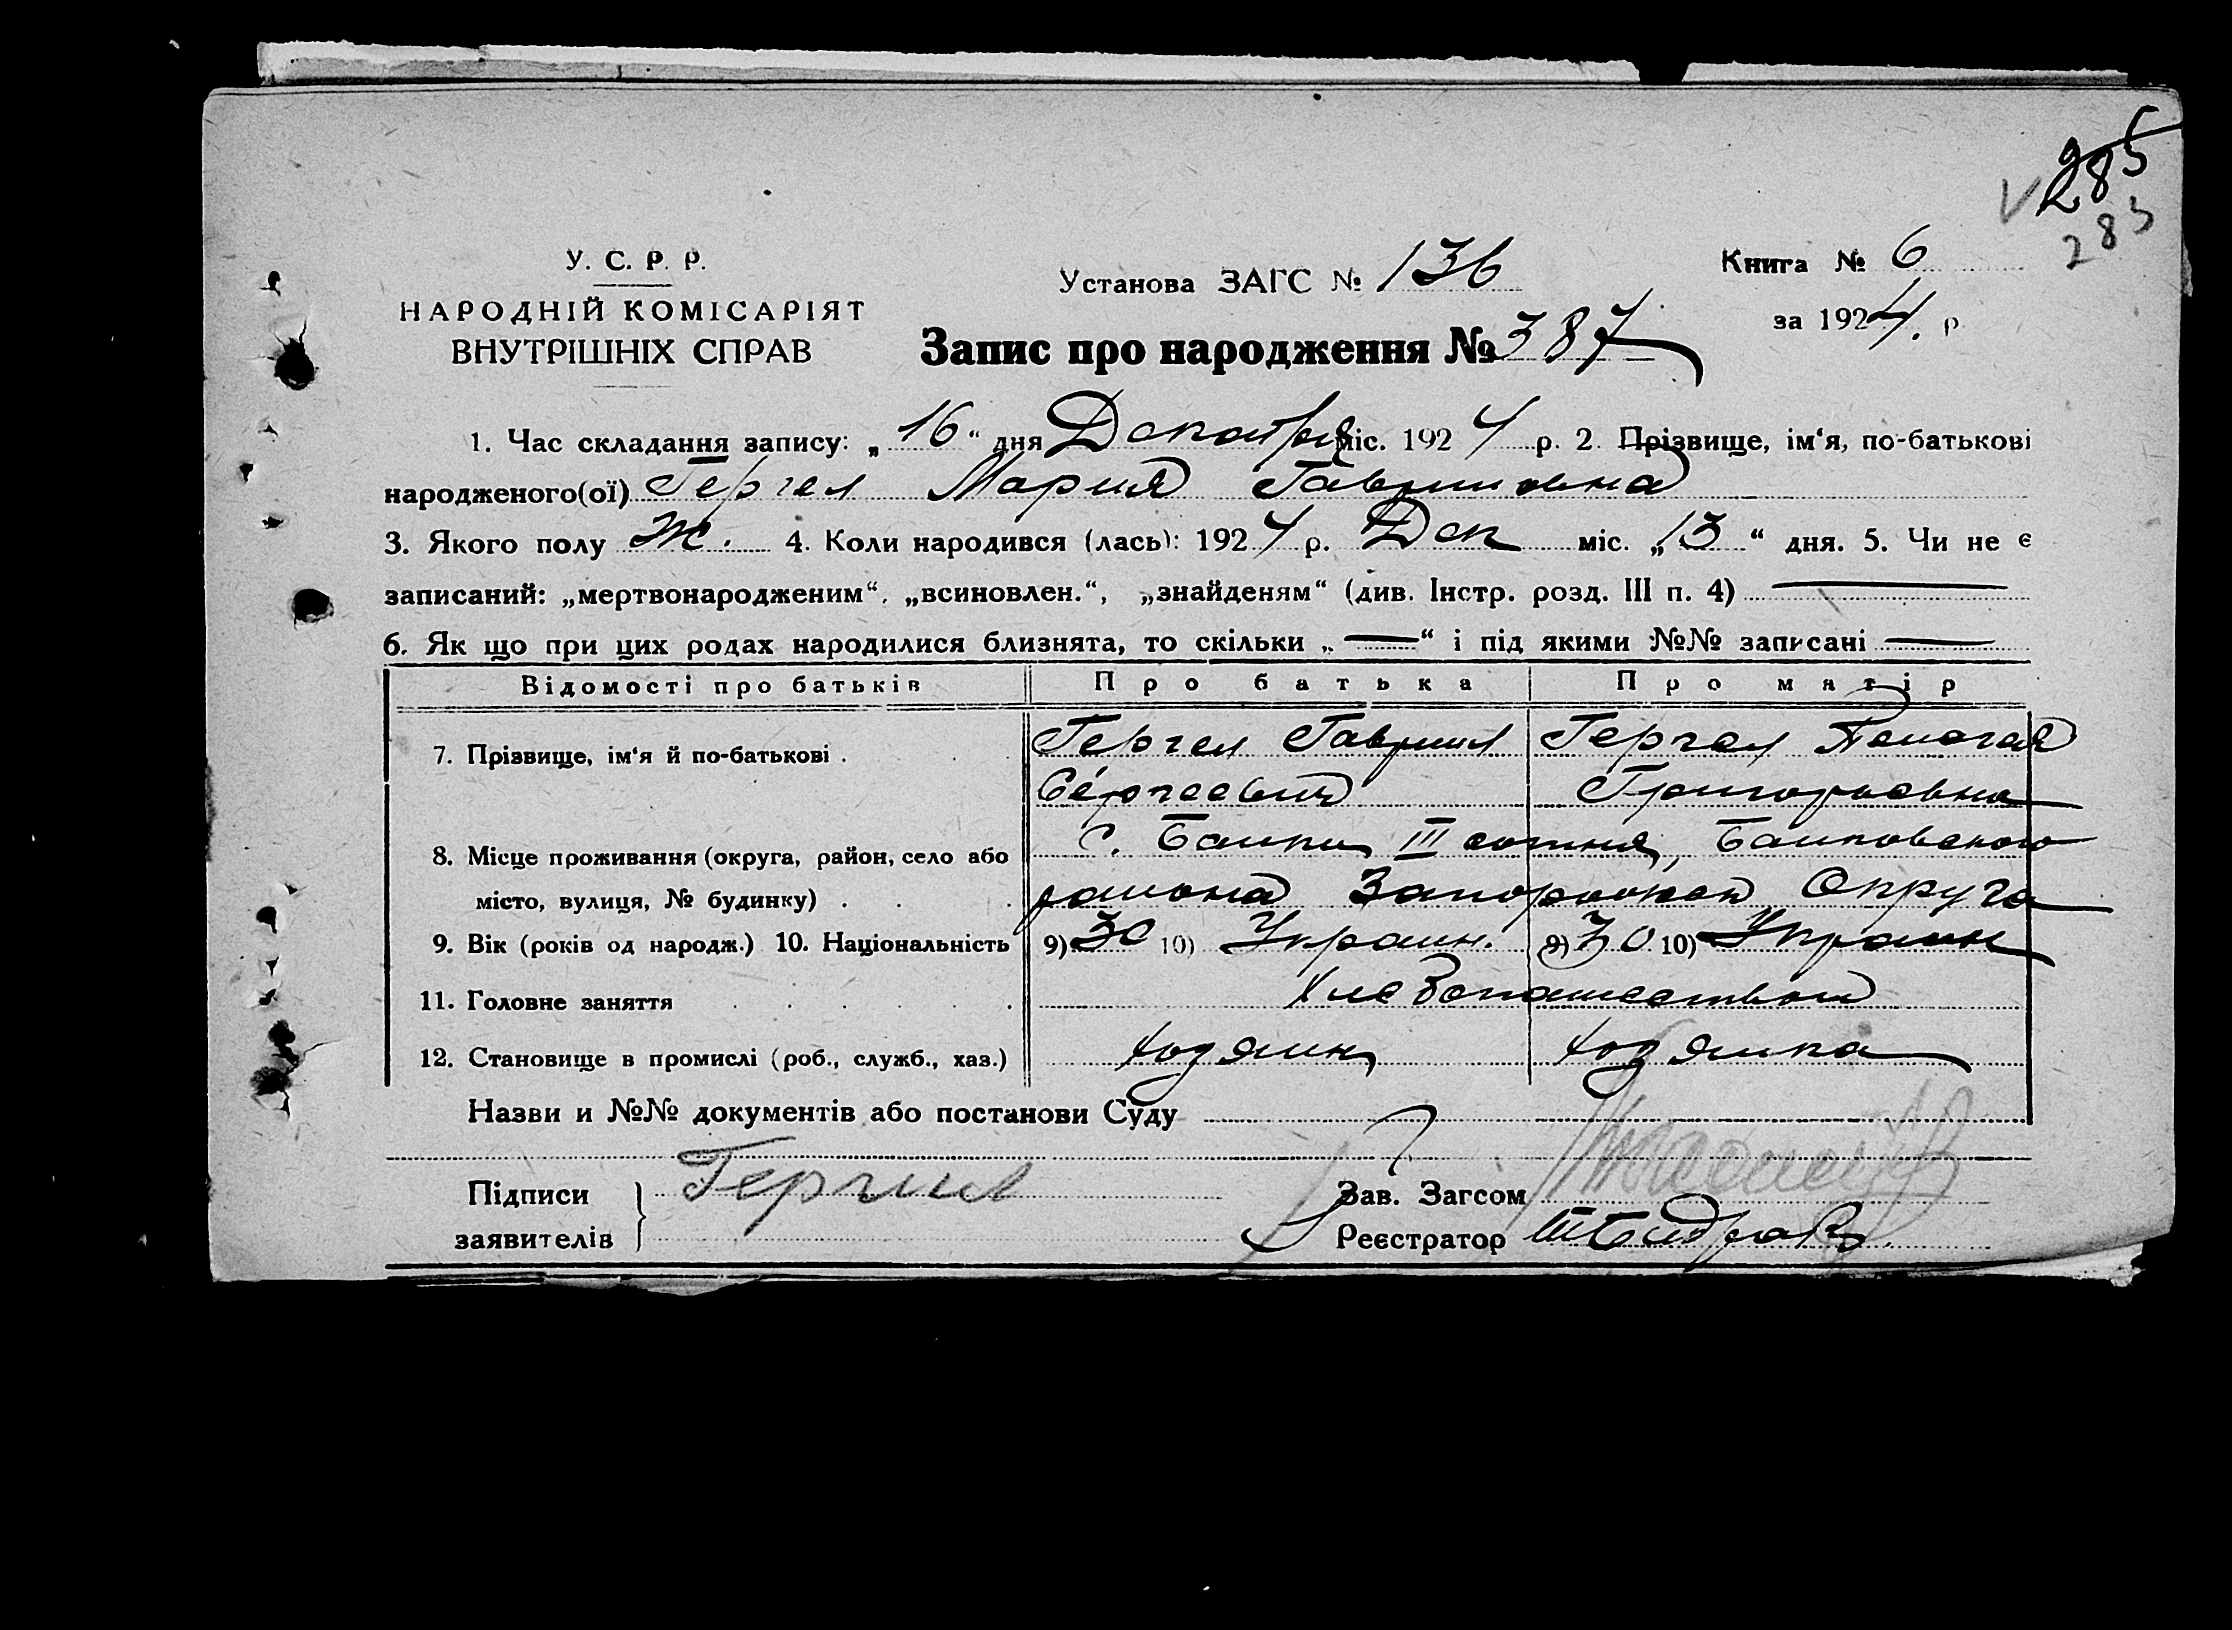 285
283
У. С. Р. Р.
НАРОДНІЙ КОМІСАРІЯТ
ВНУТРІШНІХ СПРАВ
Установа ЗАГС № 136
Книга № 6
за 1924. р
Запис про народження № 387
1. Час складання запису: „16“ дня Декабря міс. 1924 р. 2. Прізвище, ім‘я, по-батькові
народженого(ої) Гергел Мария Гавриловна
3. Якого полу Ж. 4. Коли народився (лась): 1924 р. Дек міс. „13“ дня. 5. Чи не є
записаний: „мертвонародженим“, „всиновлен.“, „знайденям“ (див. Інстр. розд. III п. 4) —
6. Як що при цих родах народилися близнята, то скільки „—“ і під якими №№ записані —
Відомості про батьків Про батька Про матір
7. Прізвище, ім‘я й по-батькові . Гергел Гаврил Гергел Пелагея
Сергеевич Григорьевна
8. Місце проживання (округа, район, село або с. Балки III сотня, Балковского
місто, вулиця, № будинку) . района Запорожск Округа
9. Вік (років од народж.) 10. Національність 9) 30 10) Украин. 9) 30 10) Украин
11. Головне заняття Хлебопашеством
12. Становище в промислі (роб., служб., хаз.) Хозяин Хозяйка
Назви и №№ документів або постанови Суду
Підписи Гергил Зав. Загсом
заявителів Реєстратор